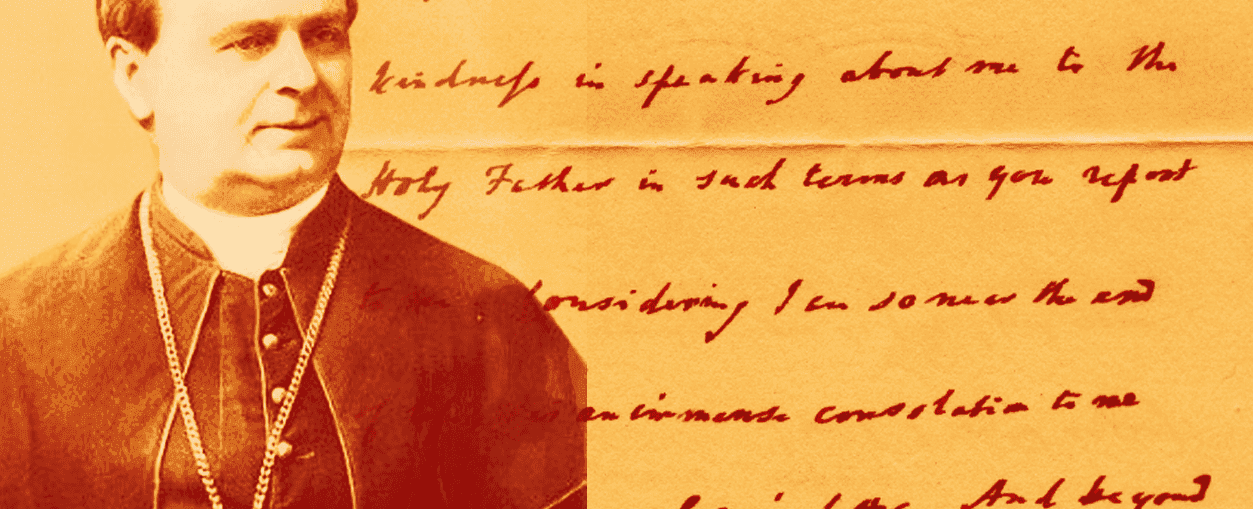 kindness in speaking about me to the
Holy Father in such terms as you report
to me. Considering I am so near the end
an immense consolation to me
And beyond